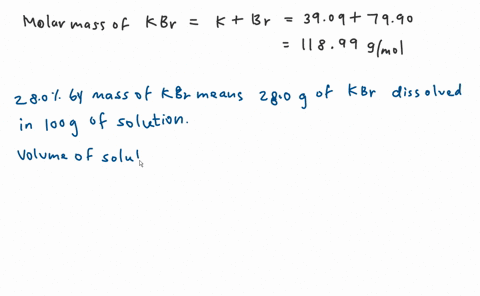 Molar mass of KBr = K + Br = 39.09 + 79.90
= 118.99 g/mol
28.0% by mass of KBr means 28.0 g of KBr dissolved
in 100g of solution.
Volume of solu